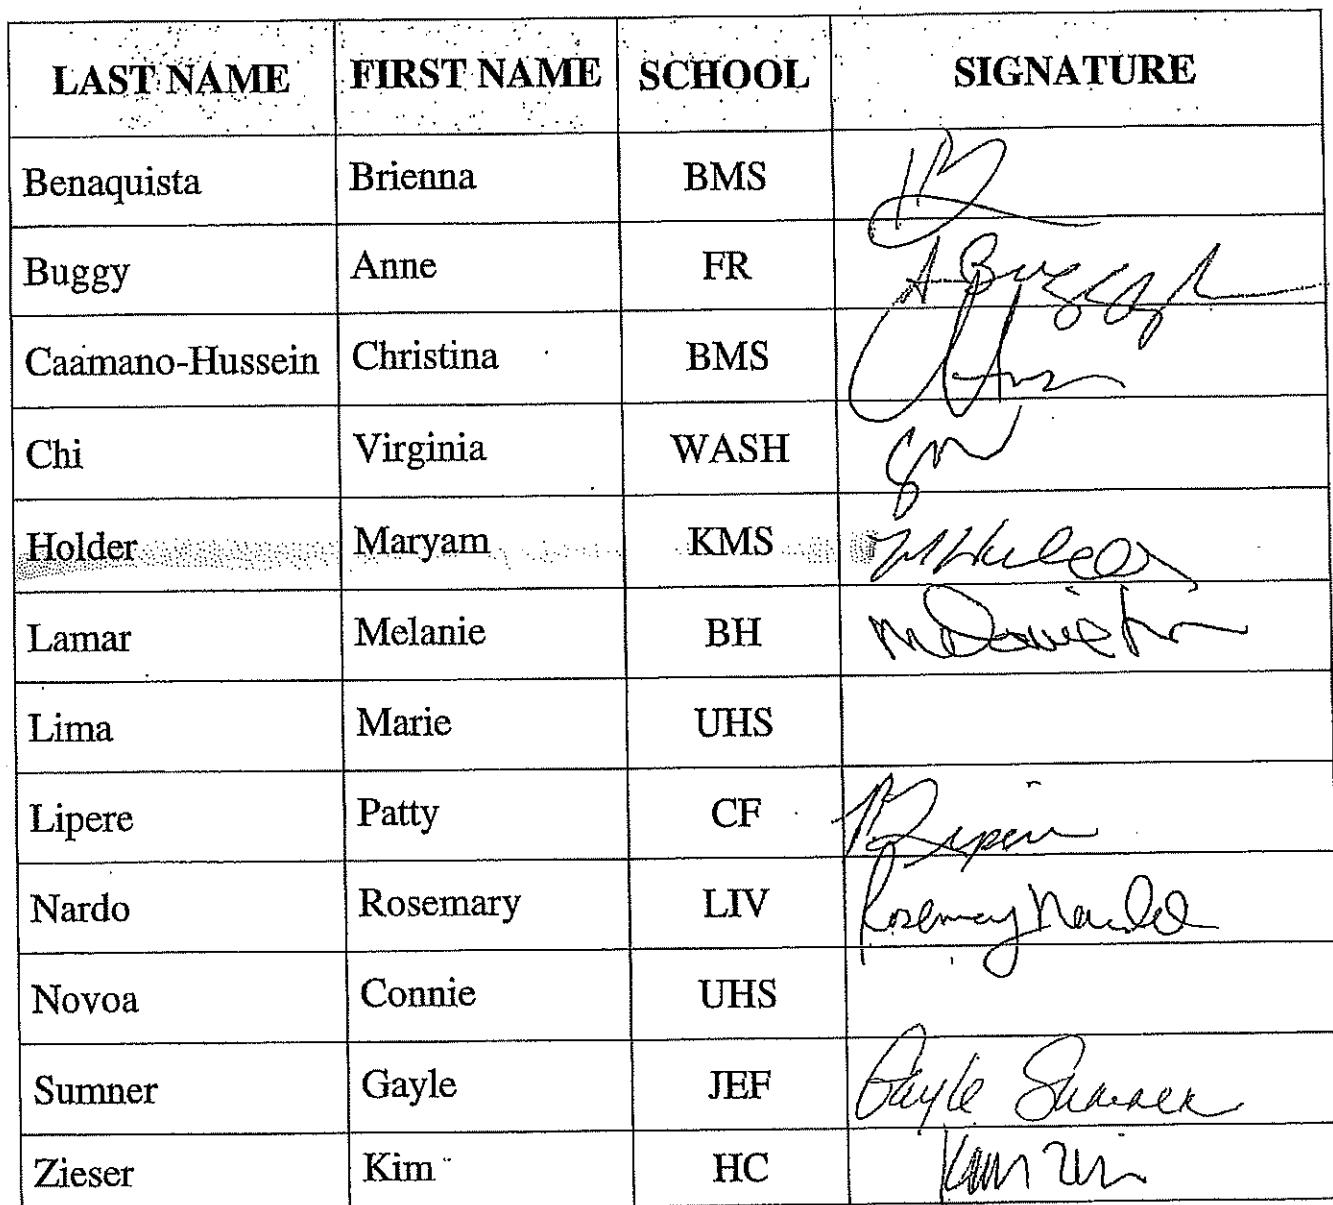 LAST NAME FIRST NAME SCHOOL SIGNATURE
Benaquista Brienna BMS
Buggy Anne FR A Buggy
Caamano-Hussein Christina BMS
Chi Virginia WASH
Holder Maryam KMS M Holder
Lamar Melanie BH Melanie
Lima Marie UHS
Lipere Patty CF P Lipere
Nardo Rosemary LIV Rosemary Nardo
Novoa Connie UHS
Sumner Gayle JEF Gayle Sumner
Zieser Kim HC Kim